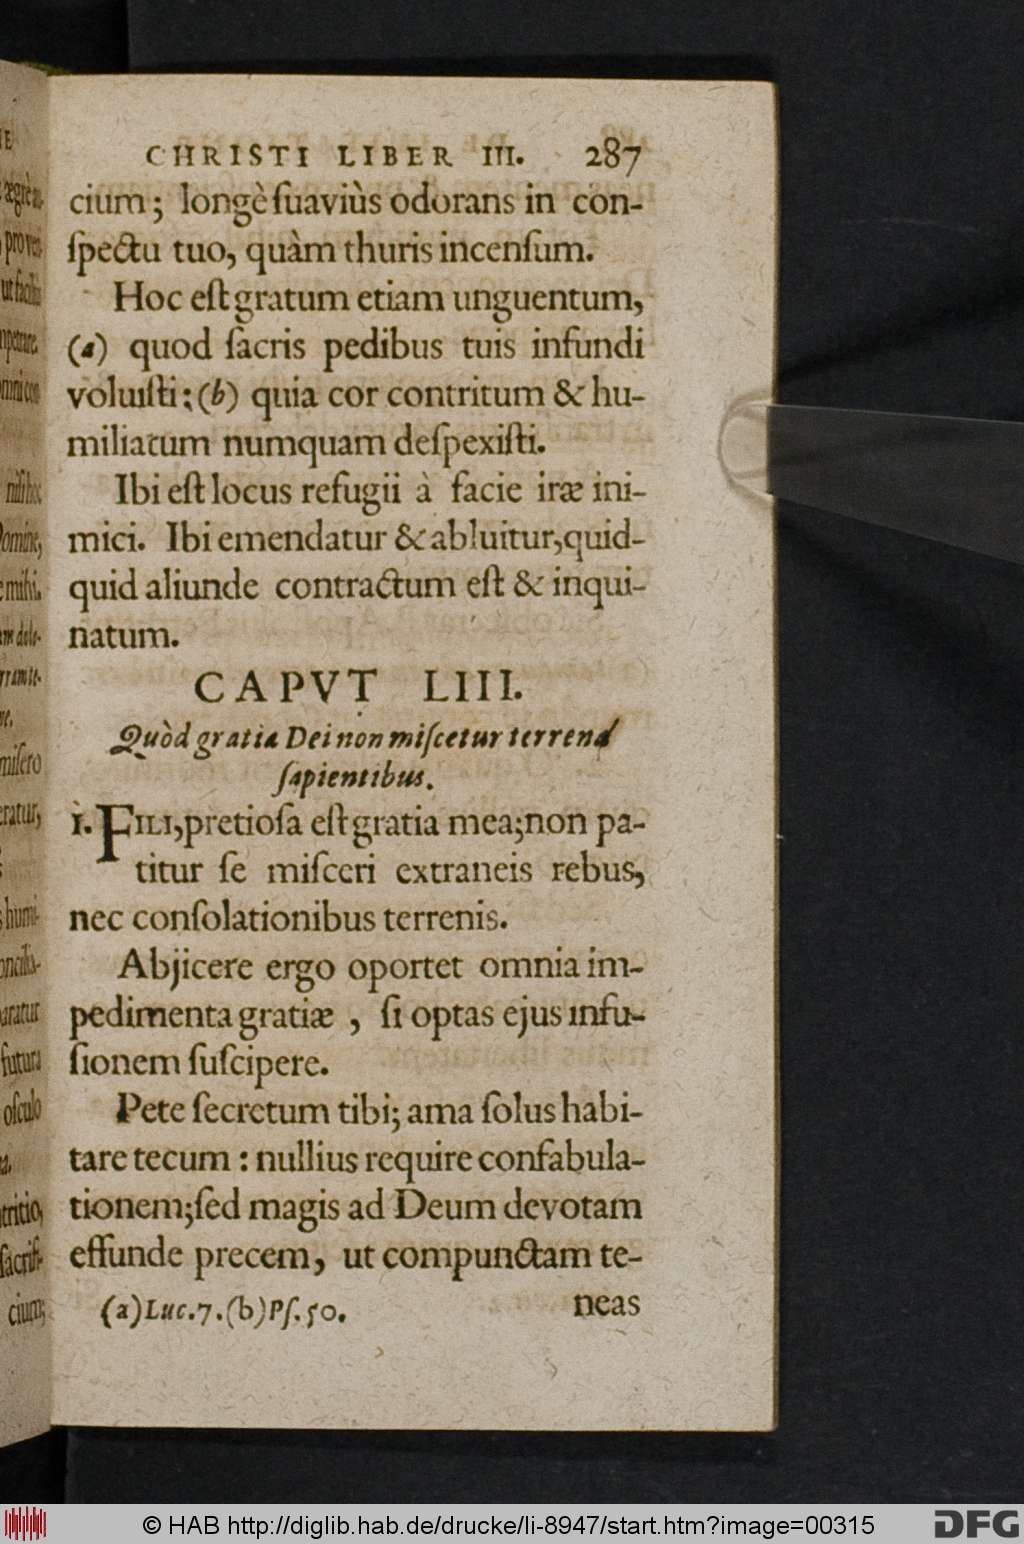 CHRISTI LIBER III. 287
cium; longè ſuaviùs odorans in con-
ſpectu tuo, quàm thuris incenſum.
Hoc eſt gratum etiam unguentum,
(a) quod ſacris pedibus tuis infundi
voluiſti; (b) quia cor contritum & hu-
miliatum numquam deſpexiſti.
Ibi eſt locus refugii à facie iræ ini-
mici. Ibi emendatur & abluitur, quid-
quid aliunde contractum eſt & inqui-
natum.
CAPVT LIII.
Quòd gratia Dei non miſcetur terrena
ſapientibus.
1. FILI, pretioſa eſt gratia mea; non pa-
titur ſe miſceri extraneis rebus,
nec conſolationibus terrenis.
Abjicere ergo oportet omnia im-
pedimenta gratiæ, ſi optas ejus infu-
ſionem ſuſcipere.
Pete ſecretum tibi; ama ſolus habi-
tare tecum: nullius require confabula-
tionem; ſed magis ad Deum devotam
effunde precem, ut compunctam te-
(a) Luc. 7. (b) Pſ. 50. neas
pro ven-
niſi hoc
Domine,
mihi.
miſero
eratur,
humi-
futura
oſculo
tritio,
ſacrifi-
cium;
© HAB http://diglib.hab.de/drucke/li-8947/start.htm?image=00315
DFG